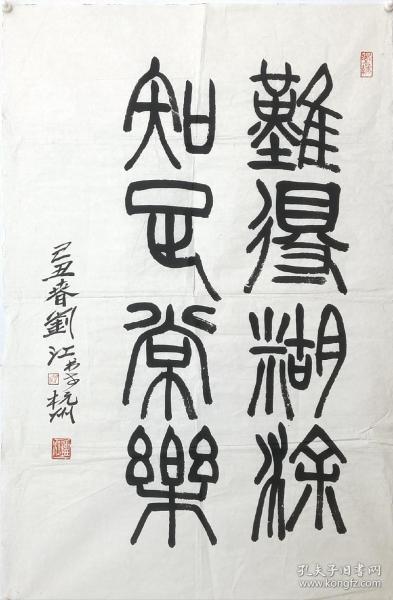 難得湖涂
知足常樂
己丑春劉江书于杭州
孔夫子旧书网
www.kongfz.com